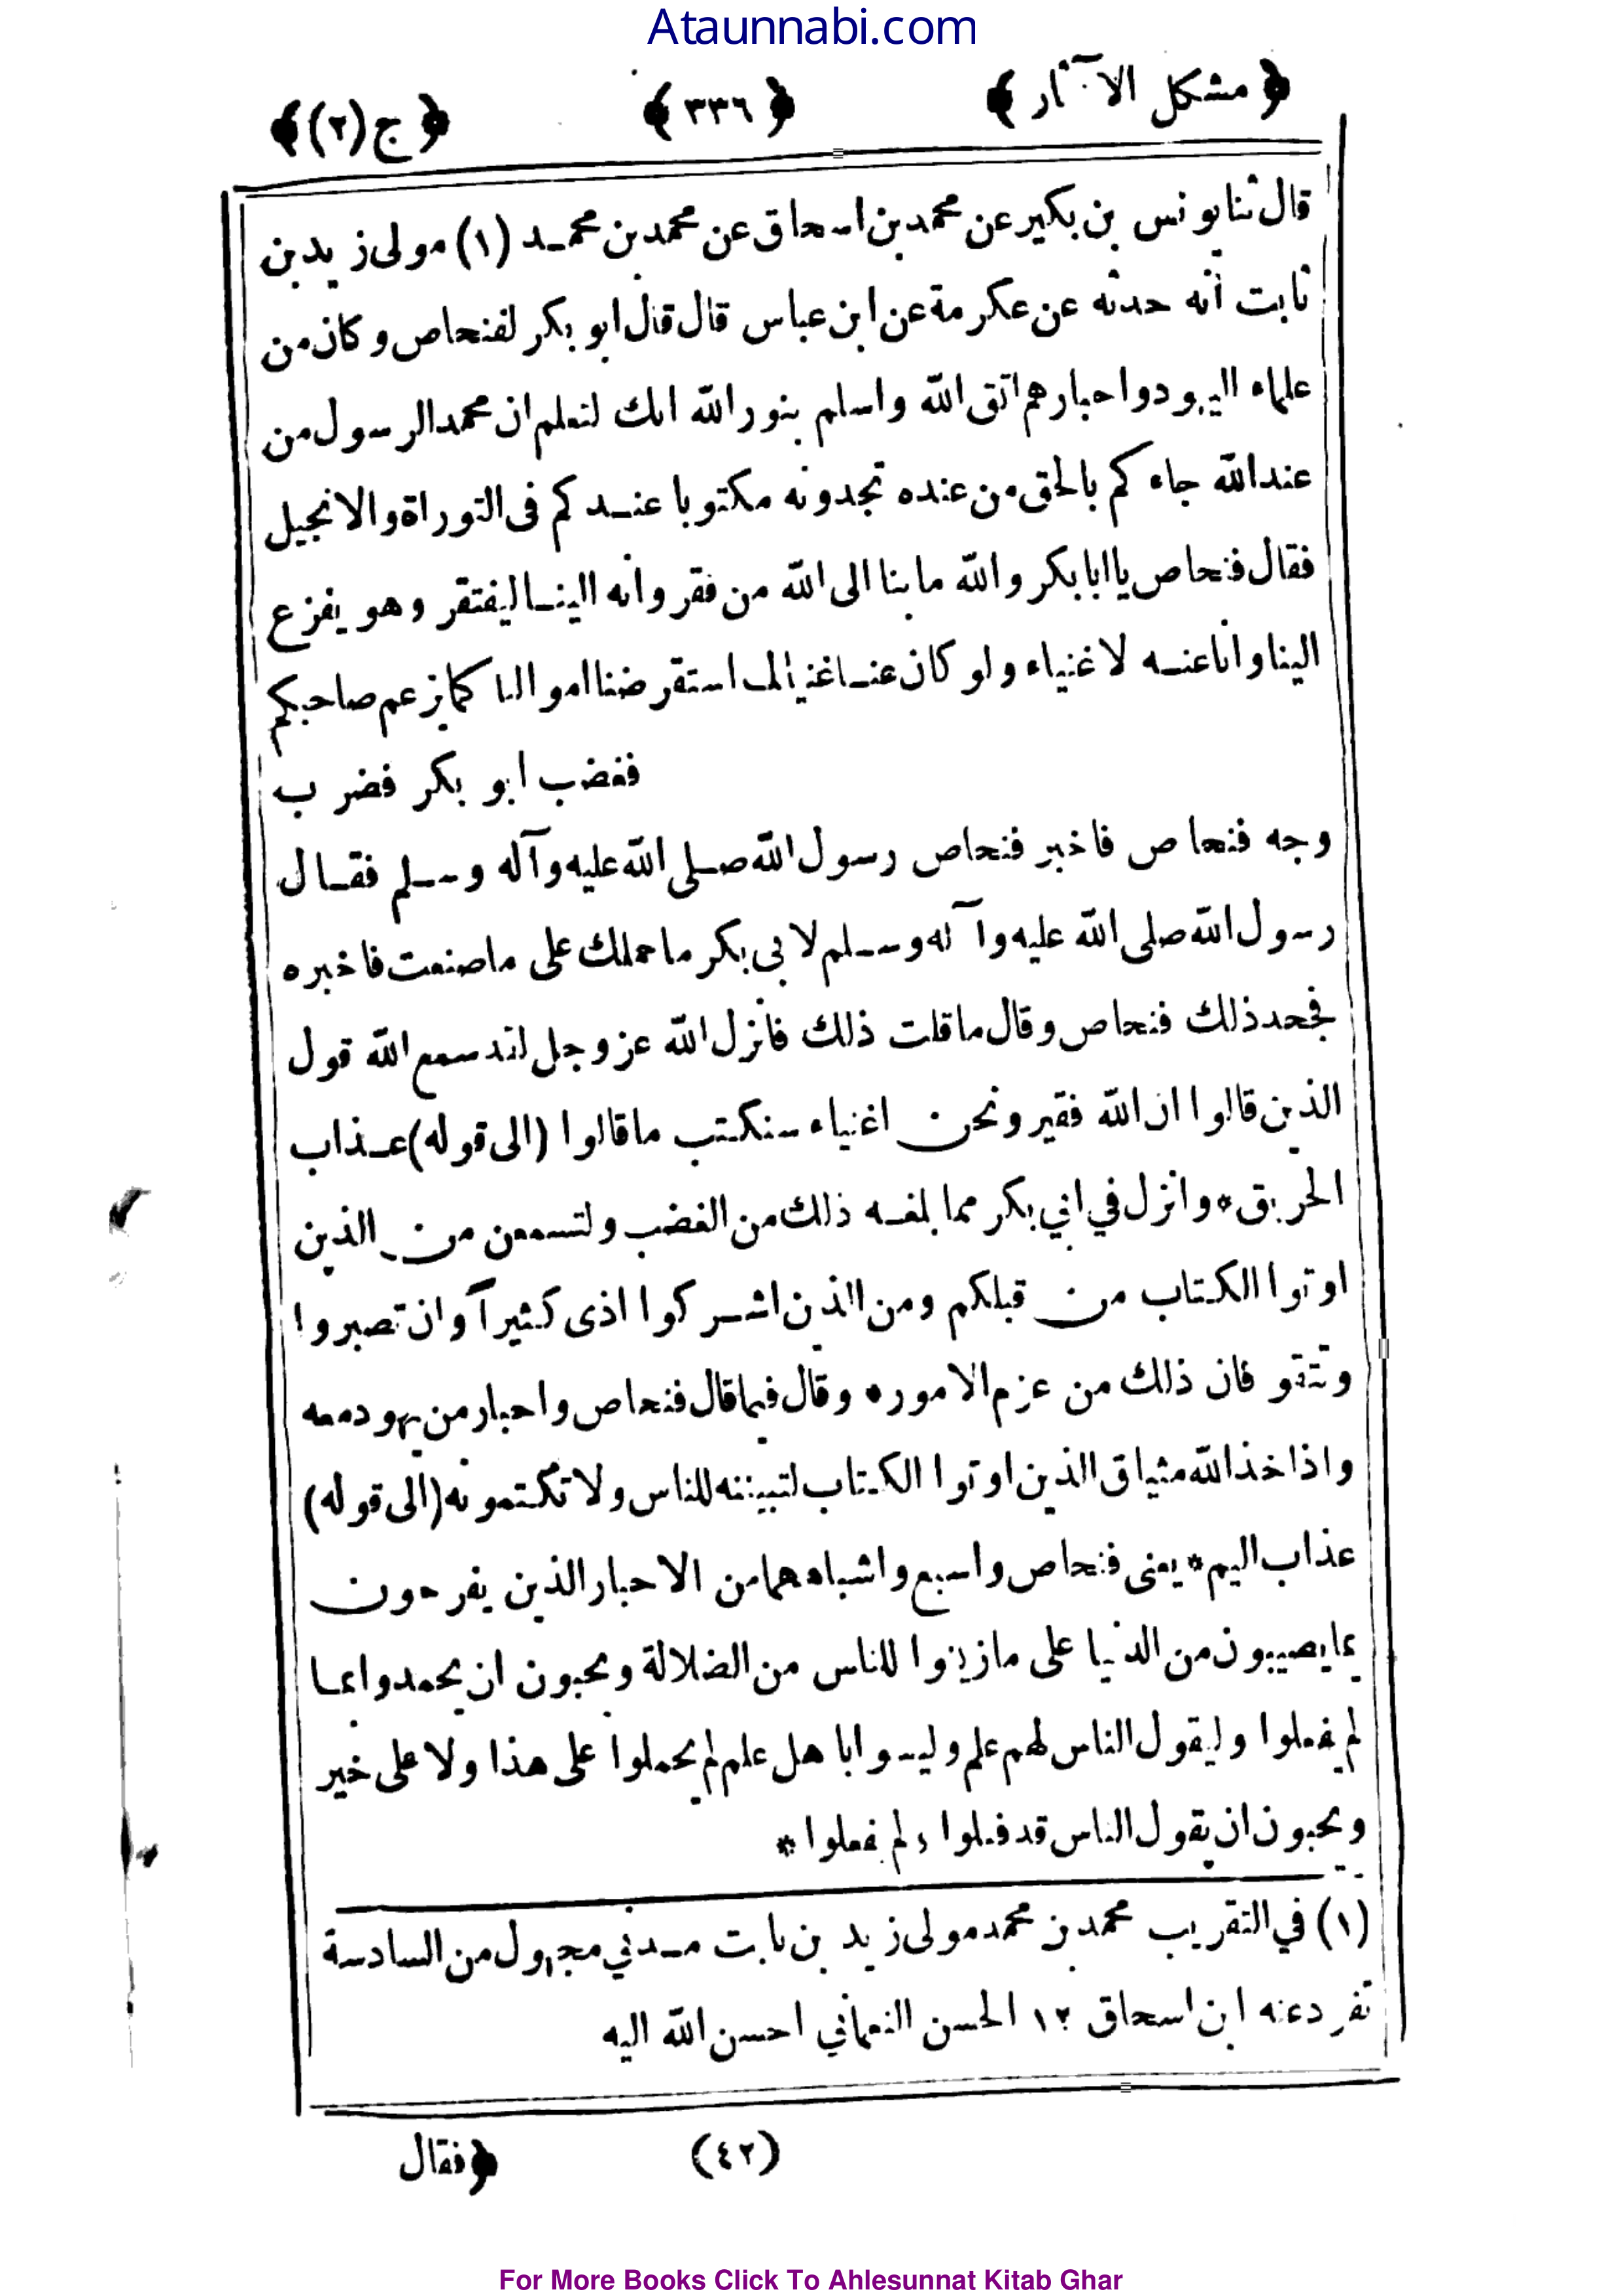 Ataunnabi.com
﴿ مشكل الآثار ﴾ ﴿ ٣٣٦ ﴾ ﴿ ج (٢) ﴾
قال ثنا يونس بن بكير عن محمد بن اسحاق عن محمد بن محمد (١) مولى زيد بن
ثابت أنه حدثه عن عكرمة عن ابن عباس قال قال ابو بكر لفنحاص وكان من
علماء اليهود واحبارهم اتق الله واسلم بنور الله انك لتعلم ان محمدا لرسول من
عند الله جاءكم بالحق من عنده تجدونه مكتوبا عندكم فى التوراة والانجيل
فقال فنحاص يا ابا بكر والله ما بنا الى الله من فقر وانه الينا ليفتقر وهو يفزع
الينا وانا عنه لاغنياء ولو كان عنا غنيا لما استقرضنا اموالنا كما يزعم صاحبكم
فغضب ابو بكر فضرب
وجه فنحاص فاخبر فنحاص رسول الله صلى الله عليه وآله وسلم فقال
رسول الله صلى الله عليه وآله وسلم لابى بكر ما حملك على ما صنعت فاخبره
فجحد ذلك فنحاص وقال ما قلت ذلك فأنزل الله عز وجل لقد سمع الله قول
الذين قالوا ان الله فقير ونحن اغنياء سنكتب ما قالوا (الى قوله) عذاب
الحريق * وانزل في ابي بكر مما بلغه ذلك من الغضب ولتسمعن من الذين
اوتوا الكتاب من قبلكم ومن الذين اشركوا اذى كثيراً وان تصبروا
وتتقو فان ذلك من عزم الامور * وقال فيما قال فنحاص واحبار من يهود معه
واذا خذ الله مثياق الذين اوتوا الكتاب لتبيننه للناس ولا تكتمونه (الى قوله)
عذاب اليم * يعنى فنحاص واسبع واشباههما من الاحبار الذين يفرحون
بما يصيبون من الدنيا على ما زينوا للناس من الضلالة ويحبون ان يحمدوا بما
لم يفعلوا وليقول الناس لهم علم وليسوا باهل علم لم يحملوا على هذا ولا على خير
ويحبون ان يقول الناس قد فعلوا ولم يفعلوا *
(١) في التقريب محمد بن محمد مولى زيد بن ثابت مدني مجهول من السادسة
تفرد عنه ابن اسحاق ١٢ الحسن النعماني احسن الله اليه
(٤٢) ﴿ فقال
For More Books Click To Ahlesunnat Kitab Ghar